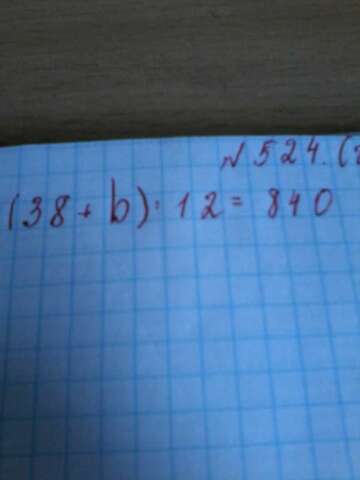 № 524. (
(38 + b) · 12 = 840